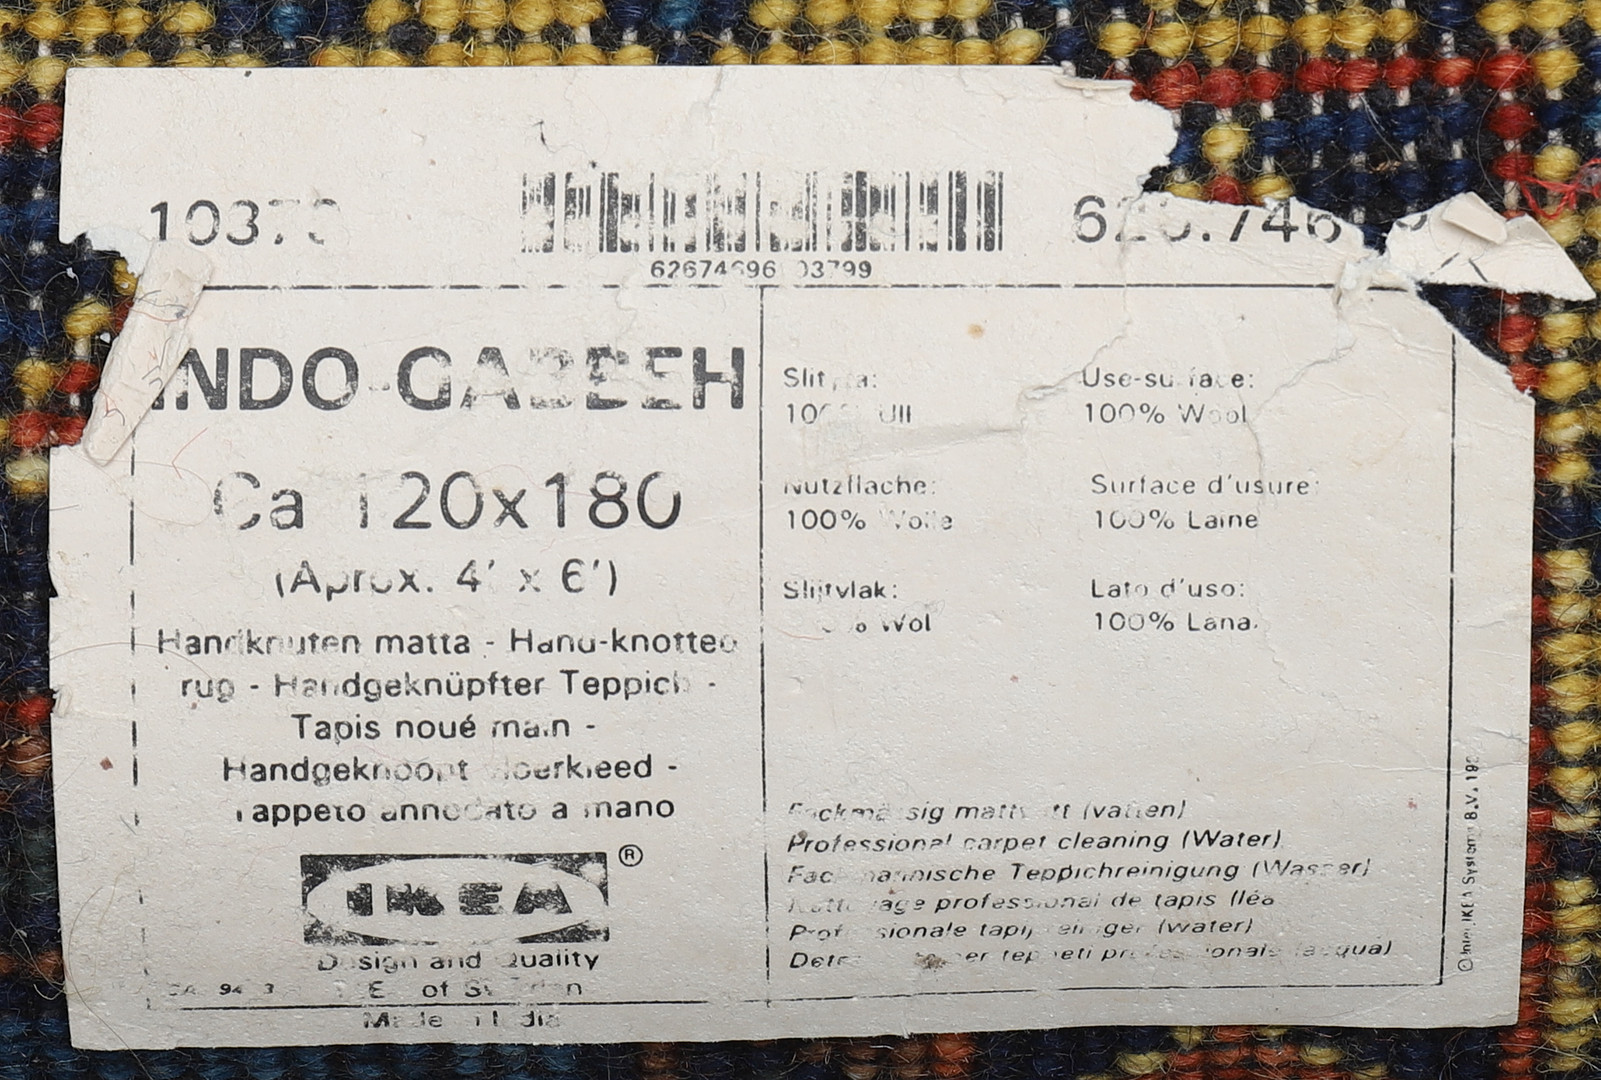 INDO-GABBEH
Ca 120x180
(Aprox. 4' x 6')
Handknuten matta - Hand-knotted
rug - Handgeknüpfter Teppich -
Tapis noué main -
Handgeknoopt vloerkleed -
Tappeto annodato a mano
IKEA®
Design and Quality
IKEA of Sweden
Made in India
Slityta:
100% Ull
Use-surface:
100% Wool
Nutzfläche:
100% Wolle
Surface d'usure:
100% Laine
Slijtvlak:
% Wol
Lato d'uso:
100% Lana.
Fackmässig mattvätt (vatten)
Professional carpet cleaning (Water)
Fachmännische Teppichreinigung (Wasser)
Nettoyage professional de tapis
Professionale tapijtreiniger (water)
professionale (acqua)
© Inter IKEA Systems B.V.